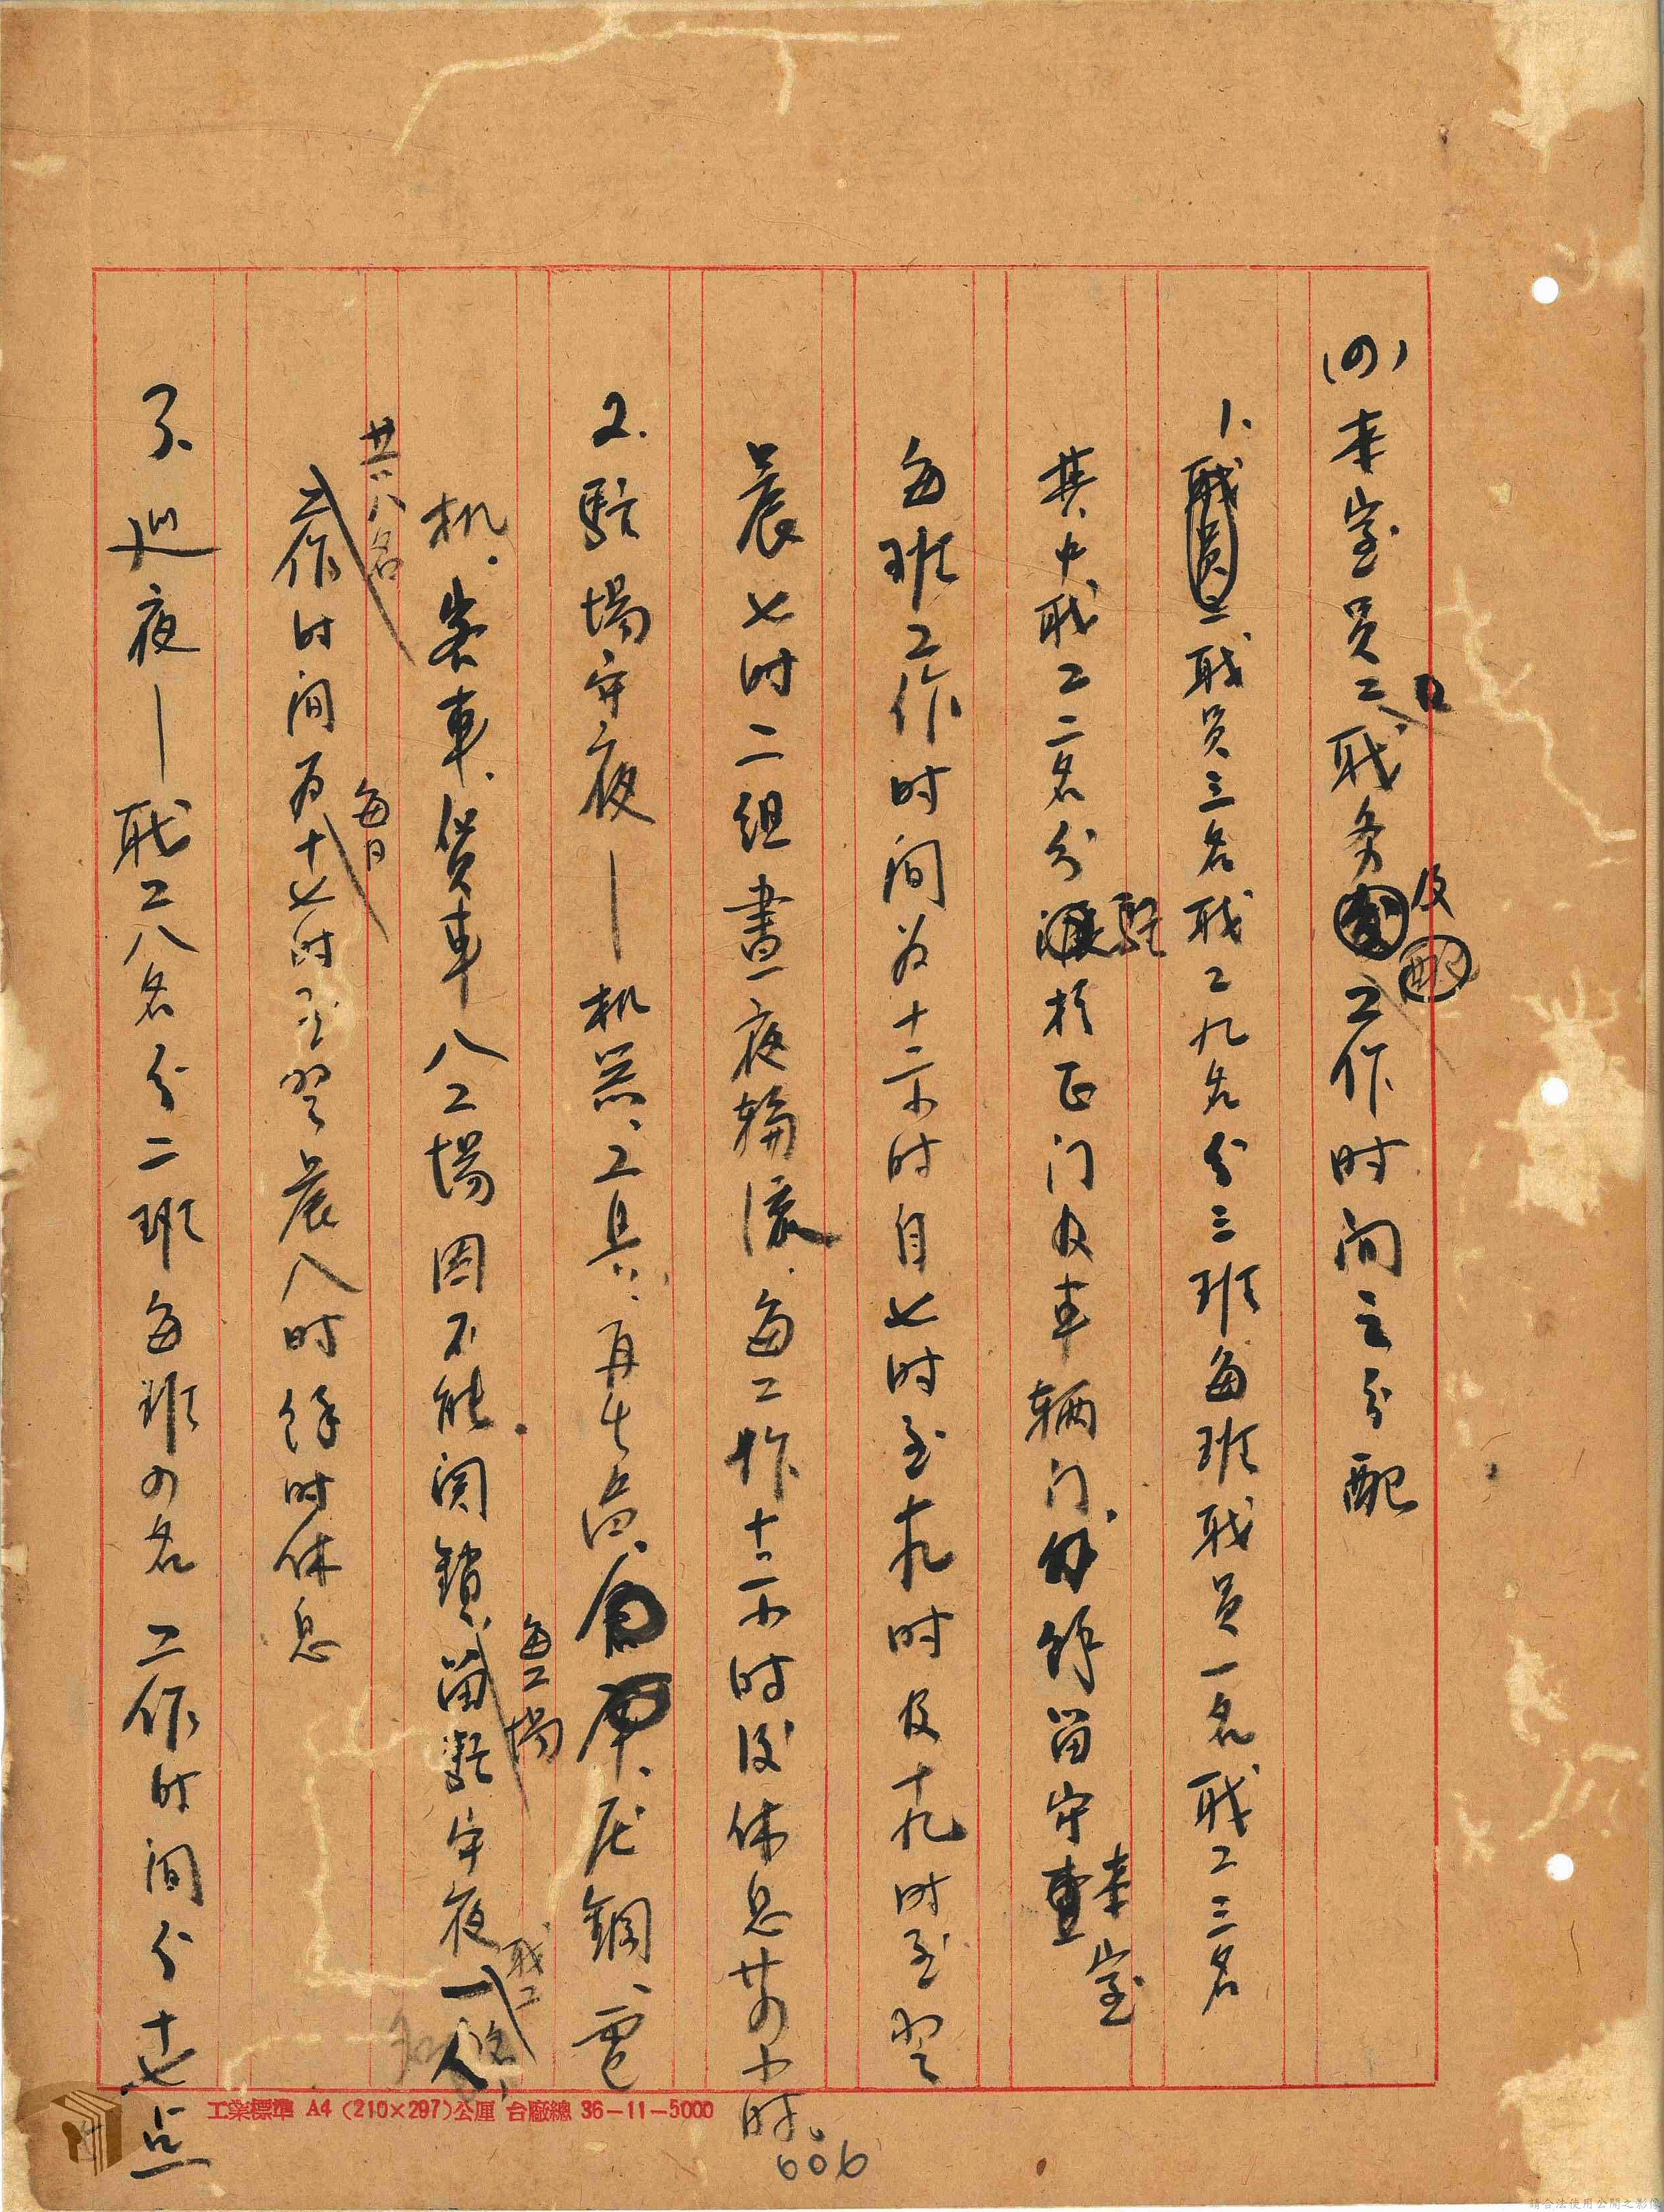 (四)本室员工职务及工作时间之分配
1、职员三名职工九名分三班每班职员一名、职工三名
其中职工二名分驻於正门及车辆门、余留守本室
每班工作时间为十二小时自七时至十九时及十九时至翌
晨七时二组晝夜輪流、每工作十二小时后休息廿四小时。
2、駐場守夜——机器、工具、再生品、倉庫、尼銅、電
机、客車、貨車八工場因不能関鎖、每工場留駐守夜职工一名
共八名每日工作时间为十七时至翌晨八时余时休息
3、巡夜——职工八名分二班每班四名 工作时间分十七点
工業標準 A4 (210×297)公厘 台廠總 36-11-5000
606